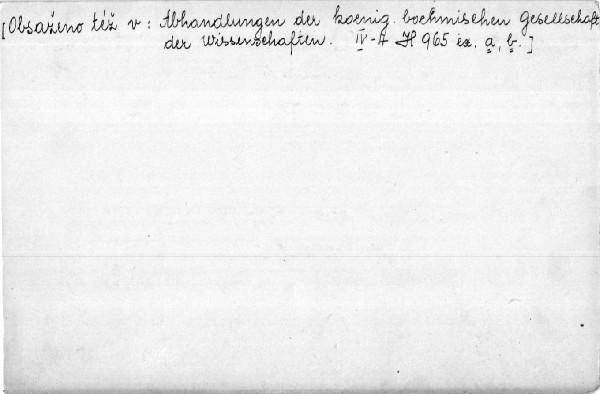 [Obsaženo též v: Abhandlungen der koenig. boehmischen Gesellschaft
der Wissenschaften. IV-A H 965 ex. a, b.]